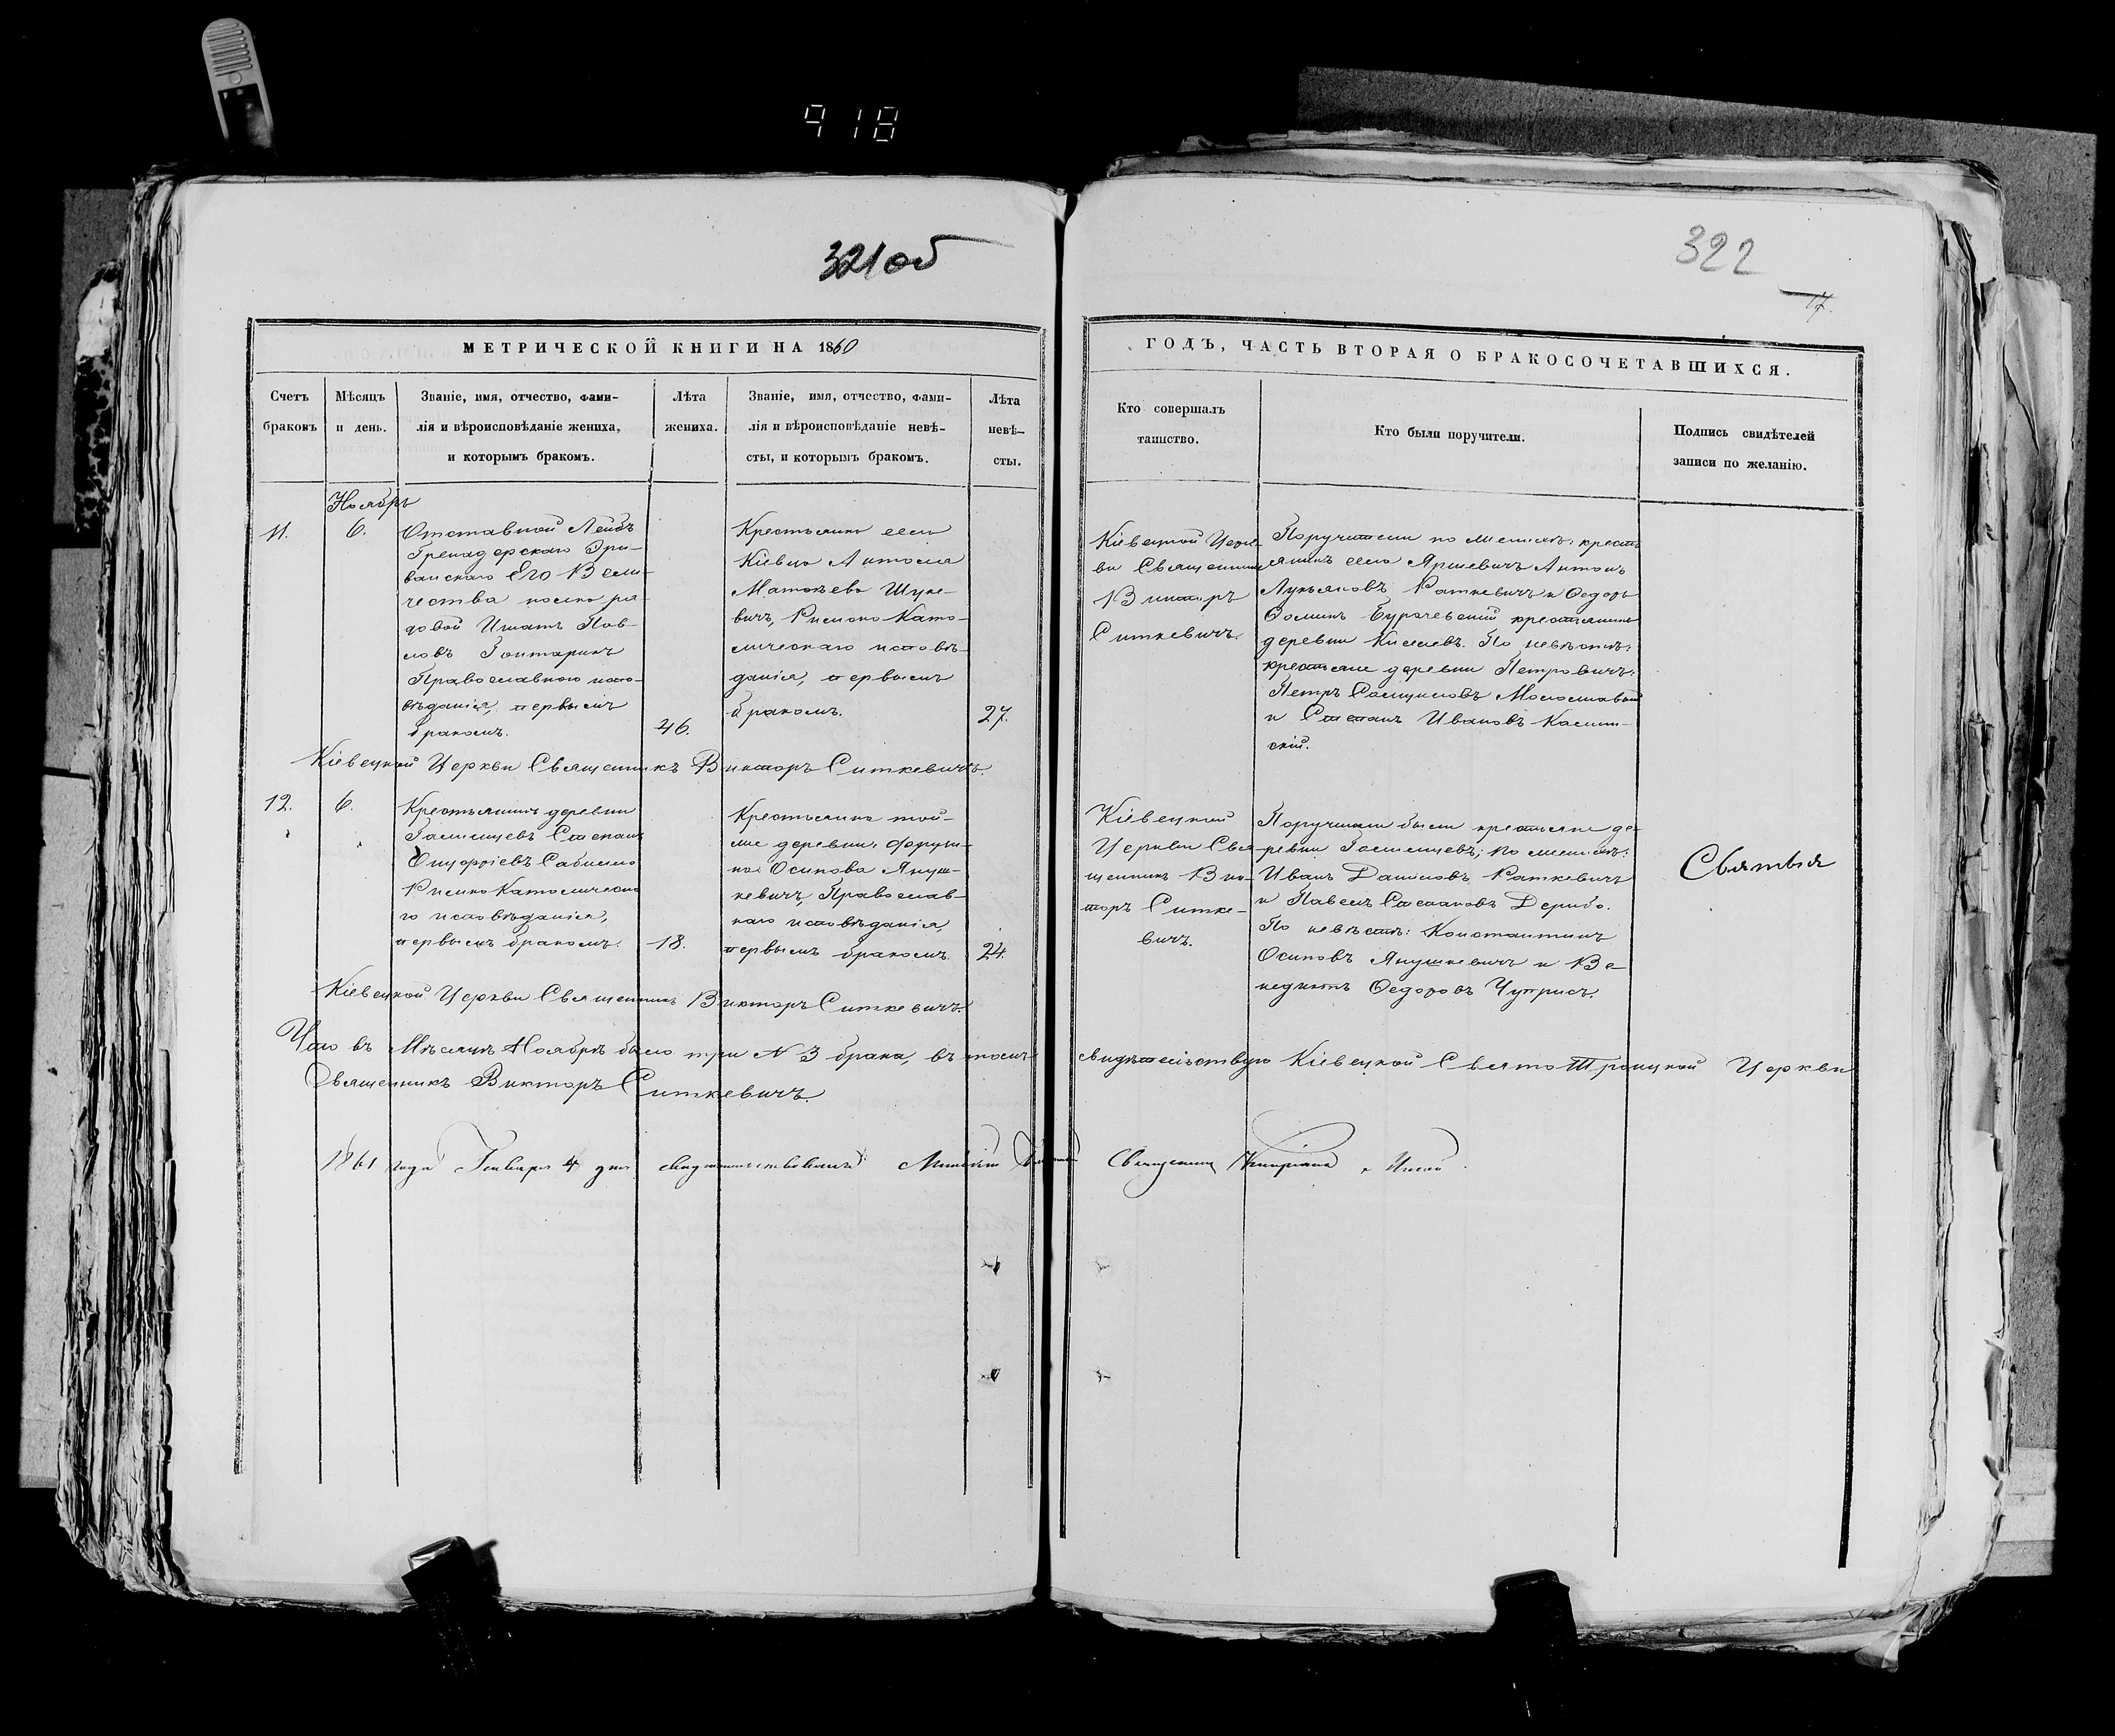 918
321об
322
17.
МЕТРИЧЕСКОЙ КНИГИ НА 1860
ГОДЪ, ЧАСТЬ ВТОРАЯ О БРАКОСОЧЕТАВШИХСЯ.
Счетъ
браковъ
Мѣсяцъ
и день.
Званіе, имя, отчество, фами-
лія и вѣроисповѣданіе жениха,
и которымъ бракомъ.
Лѣта
жениха.
Званіе, имя, отчество, фами-
лія и вѣроисповѣданіе невѣ-
сты, и которымъ бракомъ.
Лѣта
невѣ-
сты.
Кто совершалъ
таинство.
Кто были поручители.
Подпись свидѣтелей
записи по желанію.
Ноябрь
11.
6.
Отставной Лейбъ
Гренадерскаго Эри-
ванскаго Его Вели-
чества полка ря-
довой Игнатъ Пав-
ловъ Гонтарикъ
Православнаго испо-
вѣданія, первымъ
бракомъ.
46.
Крестьянка села
Кіевца Антося
Матвѣева Шуке-
вичъ, Римско Като-
лическаго исповѣ-
данія, первымъ
бракомъ.
27.
Кіевецкой Церк-
ви Священникъ
Викторъ
Ситкевичъ.
Поручители по женихѣ: кресть
янинъ села Яршевичъ Антонъ
Лукьяновъ Раткевичъ и Федоръ
Фоминъ Бурачевскій крестьянинъ
деревни Киселевъ. По невѣстѣ:
крестьяне деревни Петровичъ:
Петръ Самуиловъ Малославый
и Степанъ Ивановъ Касин-
скій.
Кіевецкой Церкви Священникъ Викторъ Ситкевичъ.
12.
6.
Крестьянинъ деревни
Галенцевъ Степанъ
Онуфріевъ Сабило
Римско Католическа
го исповѣданія,
первымъ бракомъ.
18.
Крестьянка той-
же деревни: Фрузы-
на Осипова Януш-
кевичъ, Православ-
наго исповѣданія,
первымъ бракомъ.
24.
Кіевецкой
Церкви Свя
щенникъ Вик-
торъ Ситке-
вичъ.
Поручители были крестьяне де-
ревни Галенцевъ; по женихѣ:
Иванъ Даниловъ Раткевичъ
и Павелъ Степановъ Дерибо.
По невѣстѣ: Константинъ
Осиповъ Янушкевичъ и Ве-
недиктъ Федоровъ Чуприсъ.
Святыя
Кіевецкой Церкви Священникъ Викторъ Ситкевичъ.
Что въ Мѣсяцѣ Ноябрѣ было три N 3 брака, въ томъ свидѣтельствую Кіевецкой Свято Троицкой Церкви
Священникъ Викторъ Ситкевичъ.
1861 года Генваря 4 дня свидѣтельствовалъ Священникъ